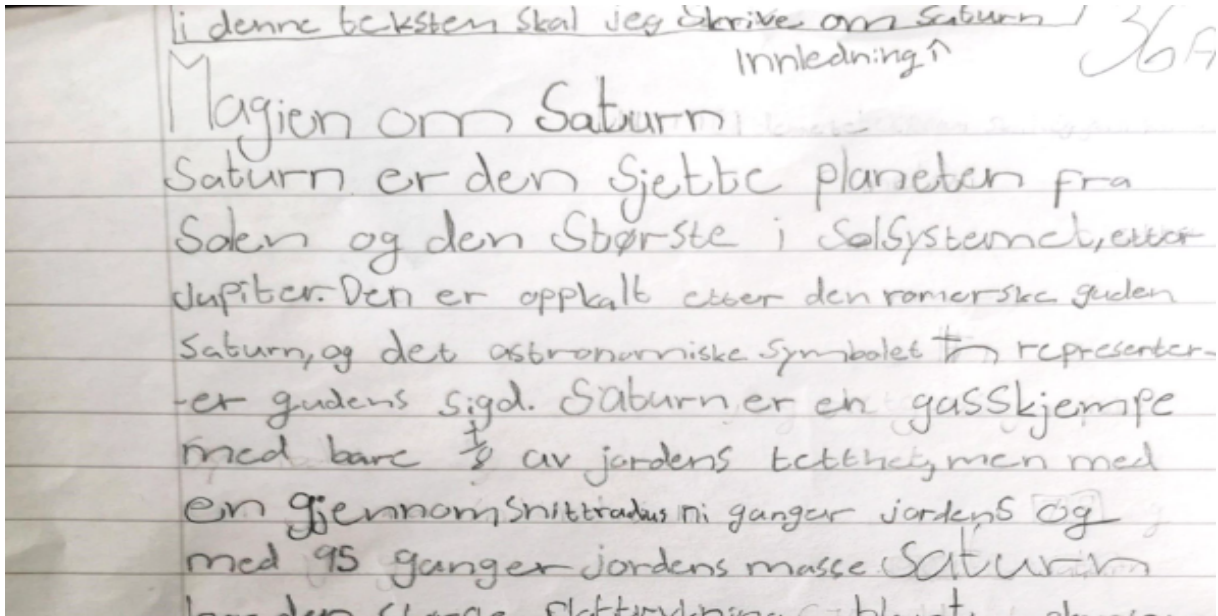 i denne teksten skal jeg skrive om saturn
Innledning ↑
36A
Magien om Saturn
Saturn er den sjette planeten fra
Solen og den Største i SolSystemet, etter
Jupiter. Den er oppkalt etter den romerske guden
Saturn, og det astronomiske symbolet ♄ representer-
-er gudens sigd. Saturn er en gasskjempe
med bare 1/8 av jordens tetthet, men med
en gjennomsnittradus ni ganger jordens og
med 95 ganger jordens masse Saturn
den